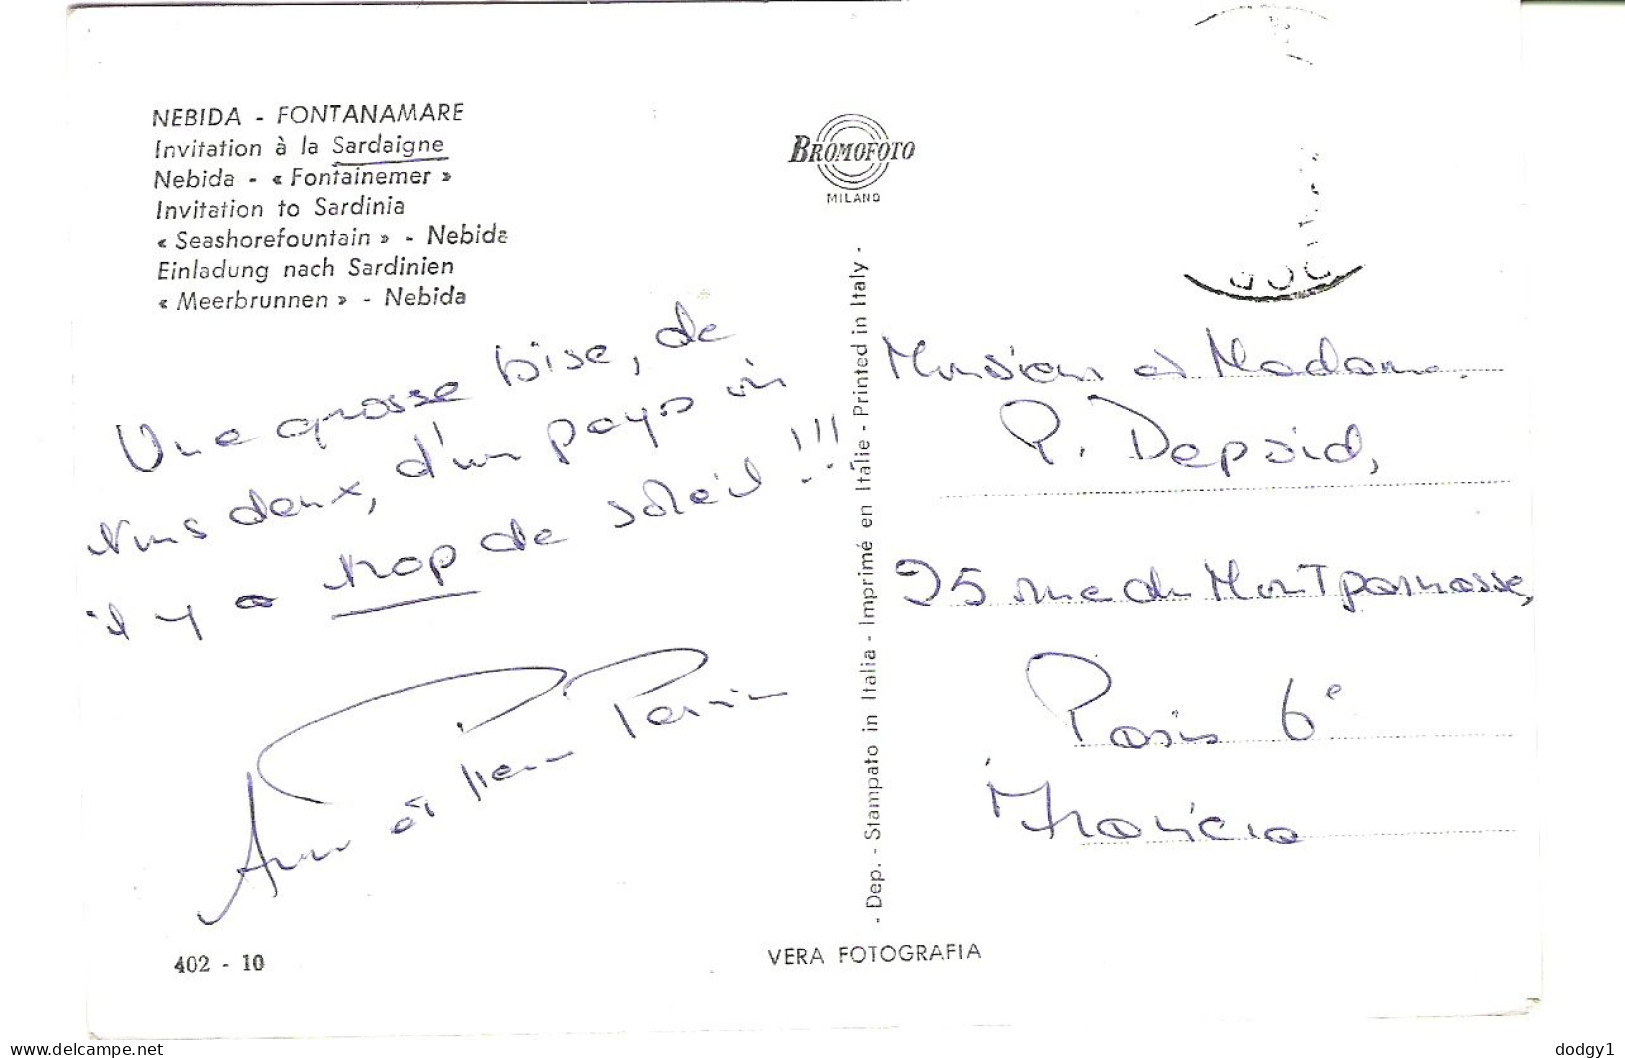 NEBIDA - FONTANAMARE
Invitation à la Sardaigne
Nebida - « Fontainemer »
Invitation to Sardinia
« Seashorefountain » - Nebida
Einladung nach Sardinien
« Meerbrunnen » - Nebida
Une grosse bise, de
nous deux, d'un pays où
il y a trop de soleil !!!
et Pierre Perrin
402 - 10
BROMOFOTO
MILANO
- Dep. - Stampato in Italia - Imprimé en Italie - Printed in Italy -
VERA FOTOGRAFIA
Monsieur et Madame
P. Depoid,
95 rue du Montparnasse,
Paris 6e
Francia
www.delcampe.net
dodgy1